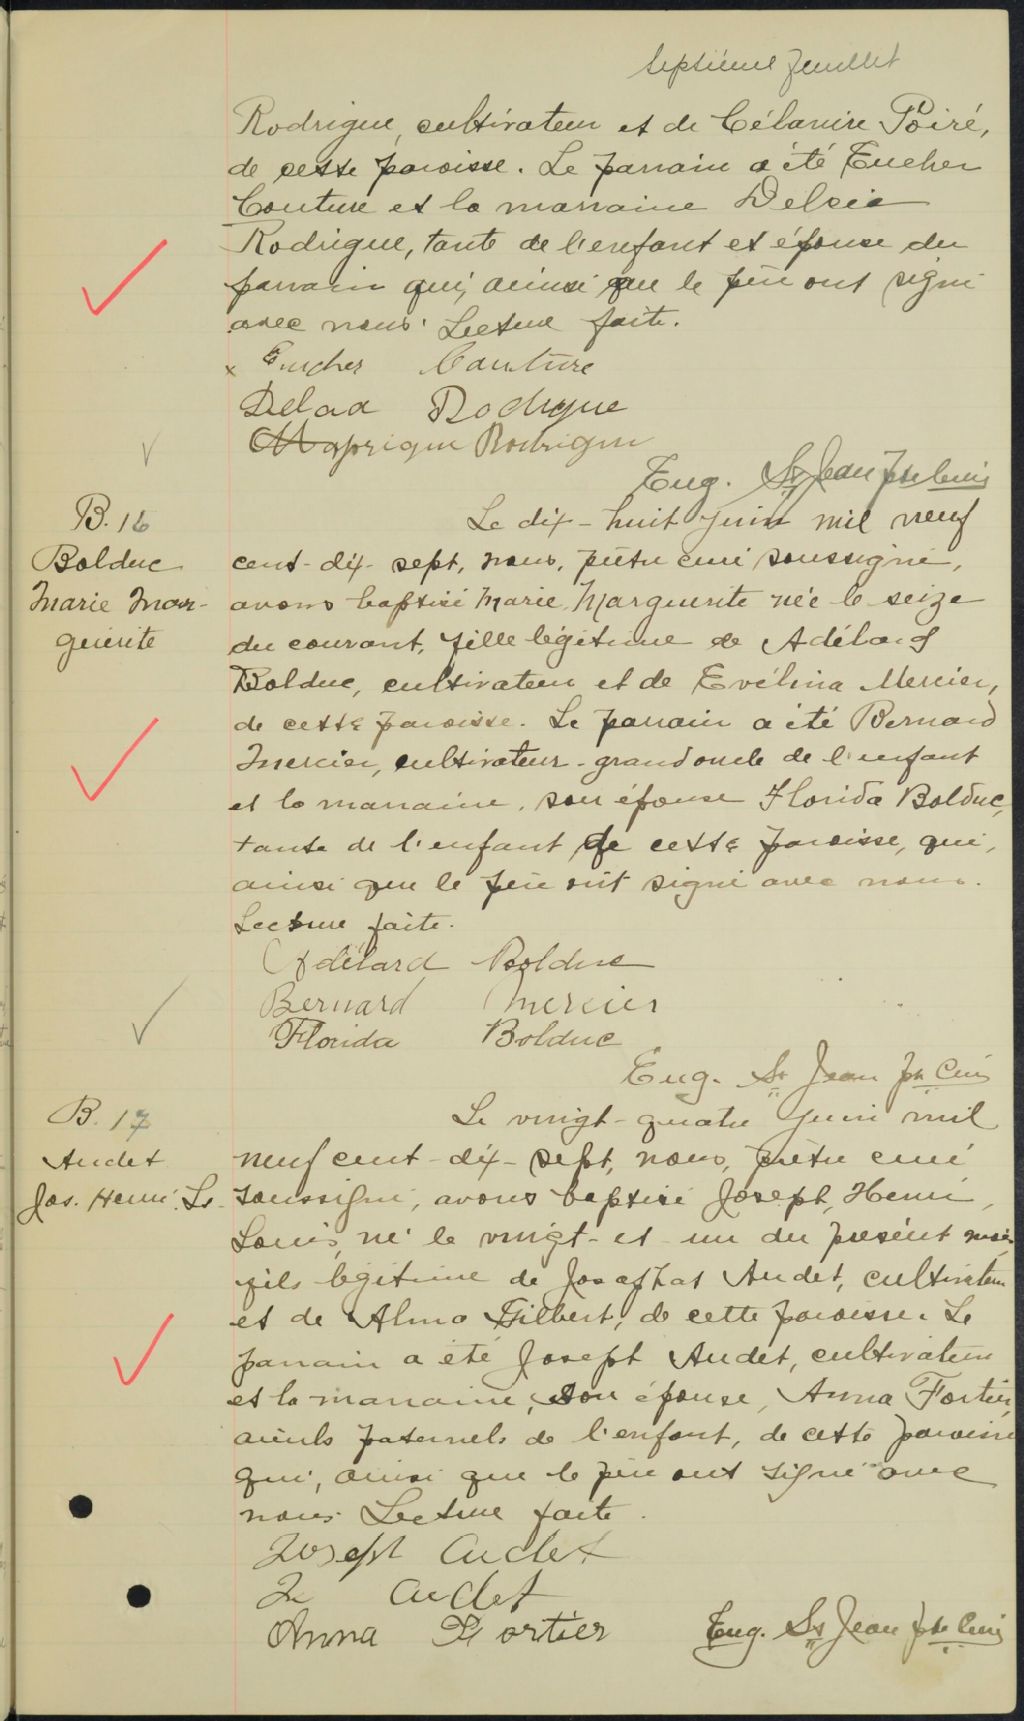 septième feuillet
Rodrigue, cultivateur et de Célanire Poiré,
de cette paroisse. Le parrain a été Eucher
Couture et la marraine Delcia
Rodrigue, tante de l'enfant et épouse du
parrain qui, ainsi que le père ont signé
avec nous. Lecture faite.
x Eucher Couture
Rodrigue
Rodrigue
Eug. St Jean Ptre Curé
B. 16
Bolduc
Marie Mar-
guerite
Le dix-huit juin mil neuf
cent-dix-sept, nous, prêtre curé soussigné,
avons baptisé Marie Marguerite née le seize
du courant, fille légitime de Adélard
Bolduc, cultivateur et de Evélina Mercier,
de cette paroisse. Le parrain a été Bernard
Mercier, cultivateur-grand oncle de l'enfant
et la marraine, son épouse Florida Bolduc,
tante de l'enfant de cette paroisse, qui,
ainsi que le père ont signé avec nous.
Lecture faite.
Adélard Bolduc
Bernard Mercier
Florida Bolduc
Eug. St Jean Ptr Curé
B. 17
Audet
Jos. Henri. Ls.
Le vingt-quatre juin mil
neuf cent-dix-sept, nous, prêtre curé
soussigné, avons baptisé Joseph, Henri,
Louis, né le vingt-et-un du présent mois
fils légitime de Josaphat Audet, cultivateur
et de Alma Gilbert, de cette paroisse. Le
parrain a été Joseph Audet, cultivateur
et la marraine, son épouse, Anna Fortier,
aïeuls paternels de l'enfant, de cette paroisse
qui, ainsi que le père ont signé avec
nous. Lecture faite.
Joseph Audet
J. Audet
Anna Fortier
Eug. St Jean Ptre Curé